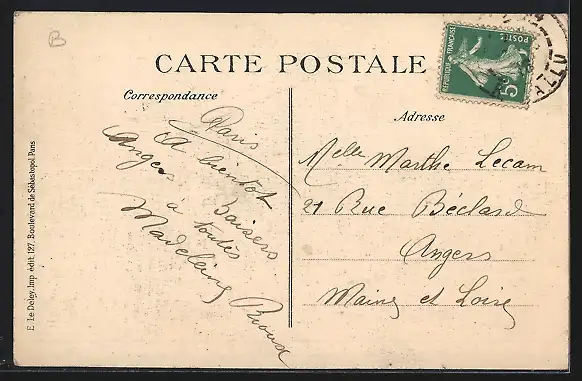 B
CARTE POSTALE
Correspondance
Adresse
REPUBLIQUE FRANÇAISE
POSTES
5c
Paris
A bientôt
Angers. Baisers
à toutes
Madeleine
Melle Marthe Lecam
21 Rue Béclard
Angers
Maine et Loire
E. Le Deley, Imp. édit. 127, Boulevard de Sébastopol, Paris